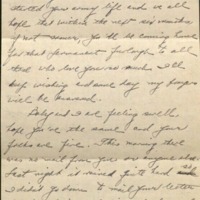 started your army life and we all
hope that within the next six months
or just sooner, you'll be coming home
for that permanent furlough to all
that who love you so much. I'll
keep wishing and some day my prayers
will be answered.
Baby and I are feeling swell,
hope you're the same and your
folks are fine. This morning there
was no mail from you or anyone else.
Last night it rained quite hard and
I didn't go down to mail your letter